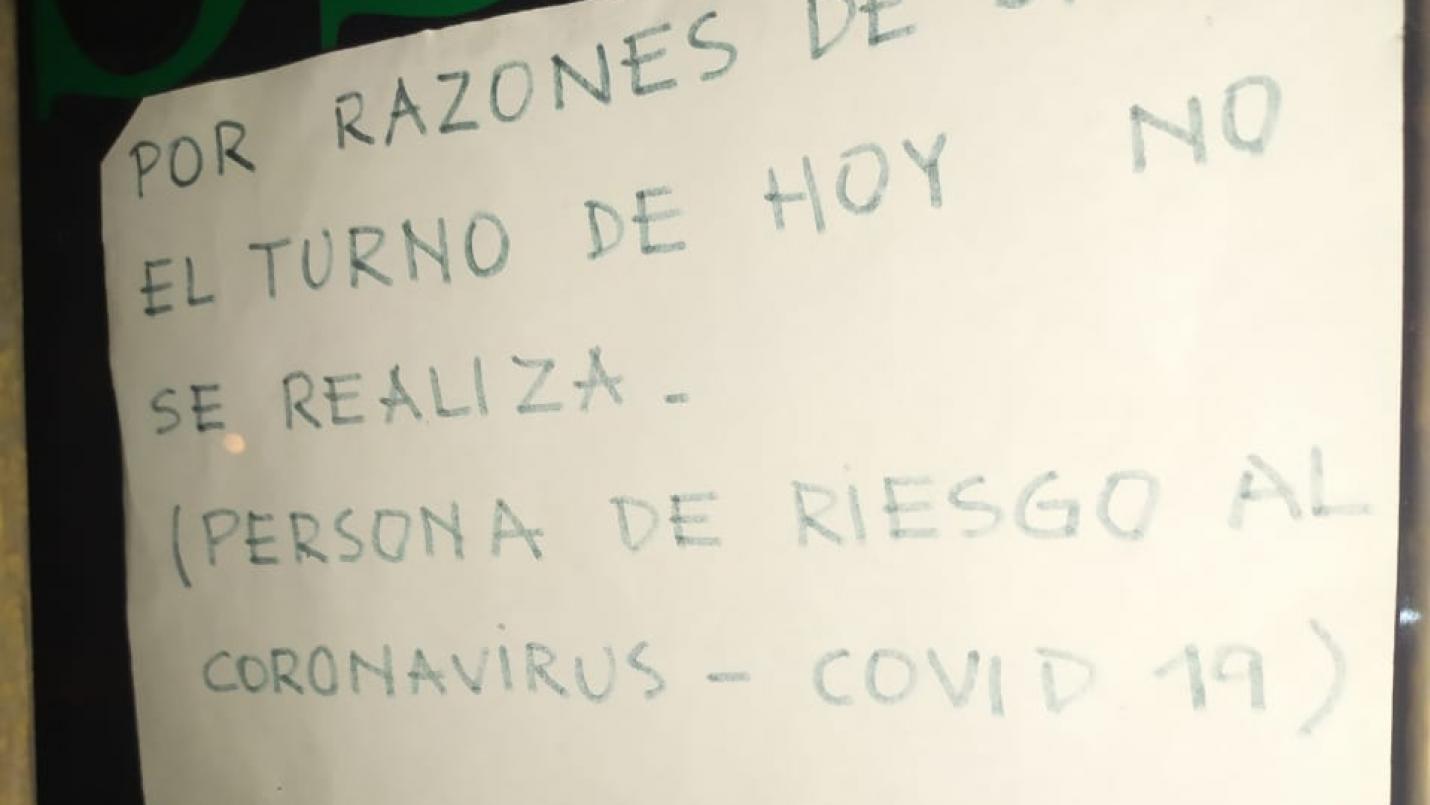 POR RAZONES DE
EL TURNO DE HOY NO
SE REALIZA.-
(PERSONA DE RIESGO AL
CORONAVIRUS - COVID 19)